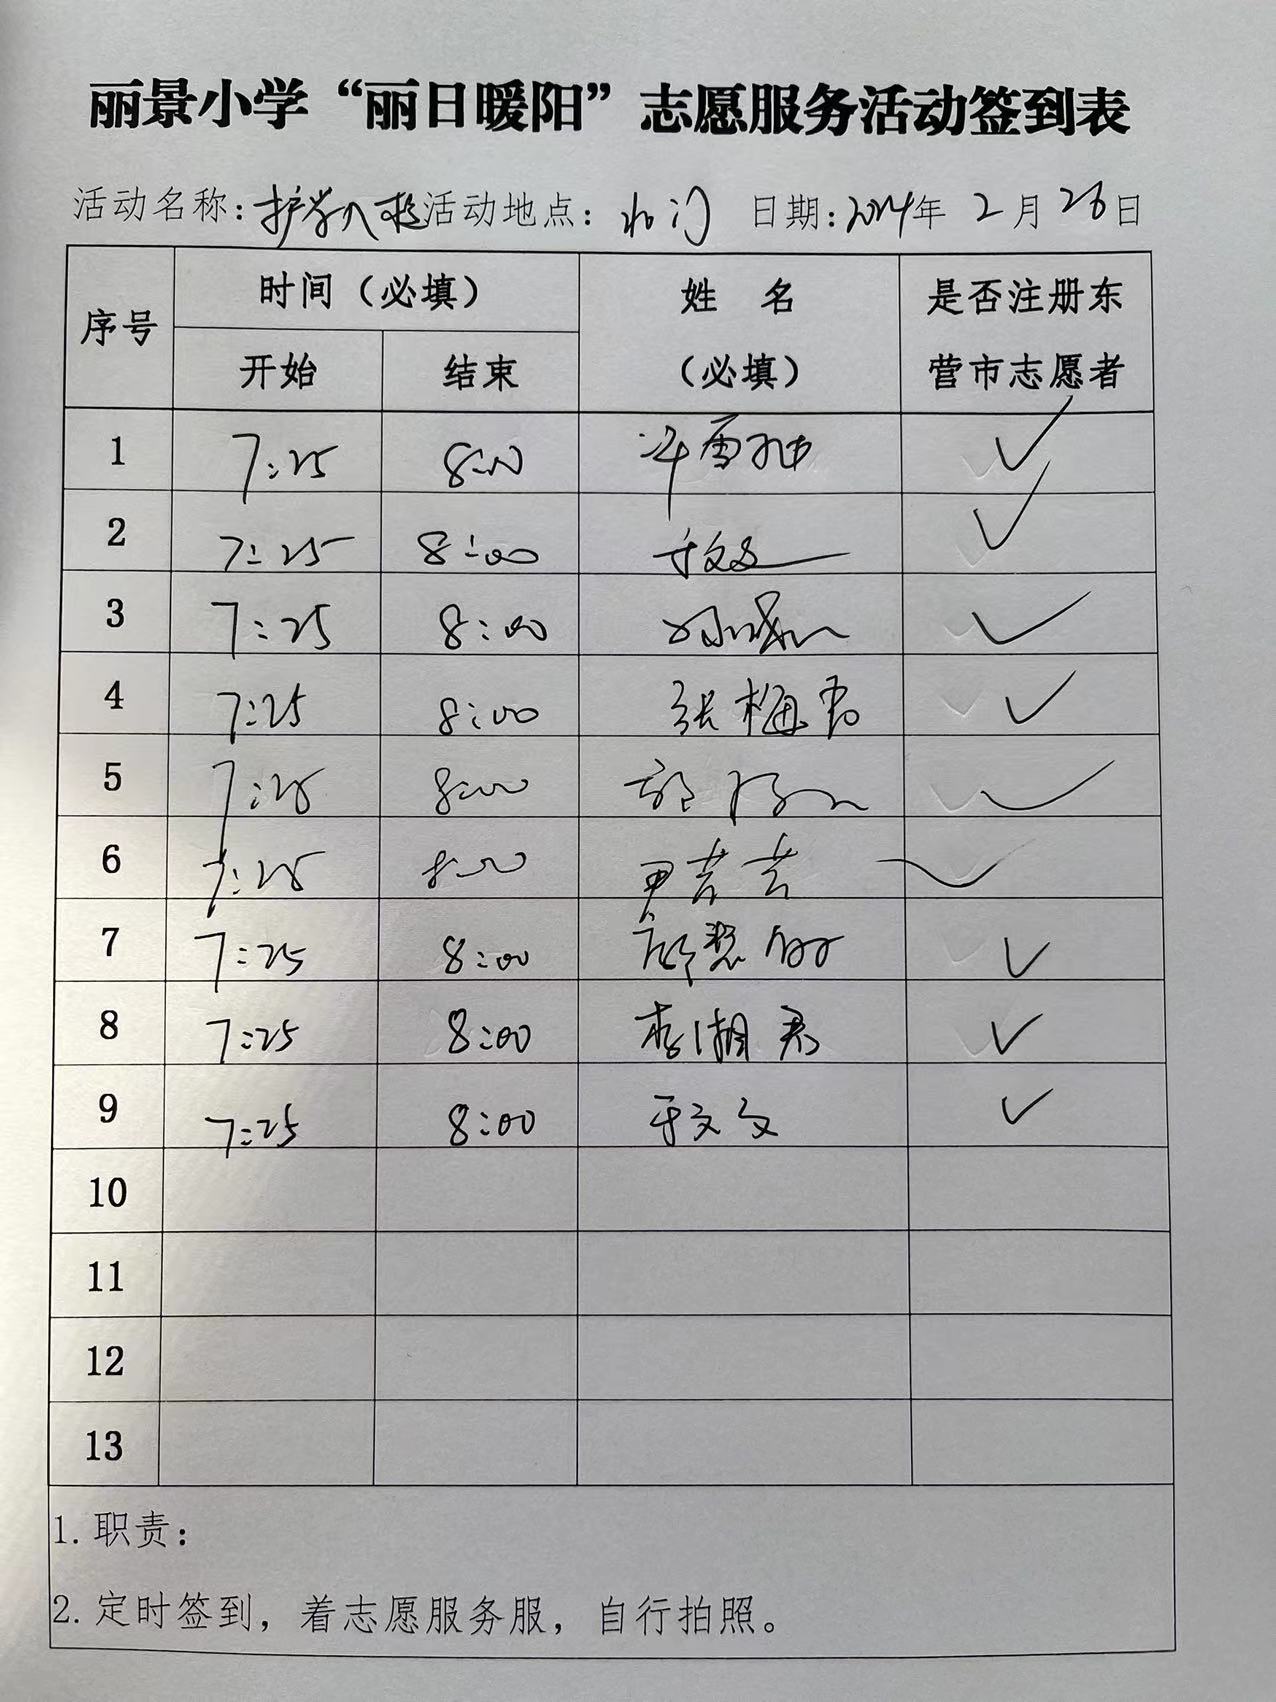 丽景小学“丽日暖阳”志愿服务活动签到表
活动名称:护学入校 活动地点: 北门 日期:2024年 2月 26日
序号 时间（必填） 姓 名 是否注册东
开始 结束 （必填） 营市志愿者
1 7:25 8:00 ✓
2 7:25 8:00 ✓
3 7:25 8:00 ✓
4 7:25 8:00 张梅君 ✓
5 7:25 8:00 ✓
6 7:25 8:00 尹芸芸 ✓
7 7:25 8:00 ✓
8 7:25 8:00 李湘君 ✓
9 7:25 8:00 于文文 ✓
10
11
12
13
1. 职责:
2. 定时签到，着志愿服务服，自行拍照。